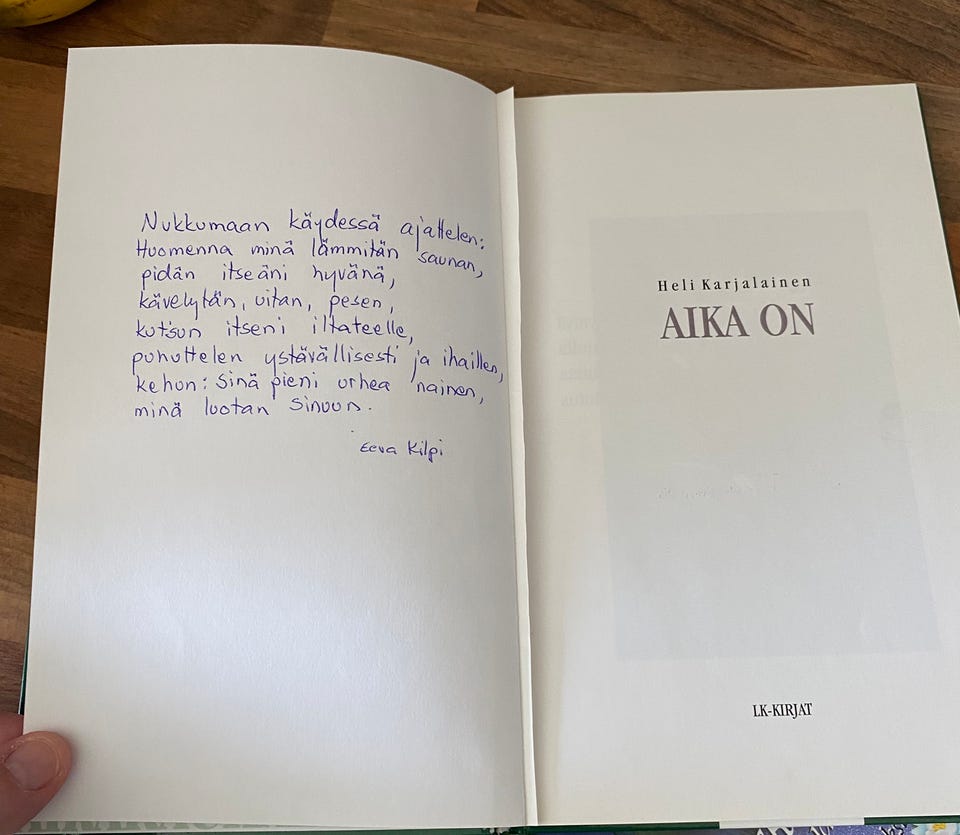 Nukkumaan käydessä ajattelen:
Huomenna minä lämmitän saunan,
pidän itseäni hyvänä,
kävelytän, uitan, pesen,
kutsun itseni iltateelle,
puhuttelen ystävällisesti ja ihaillen,
kehun: Sinä pieni urhea nainen,
minä luotan sinuun.
Eeva Kilpi
Heli Karjalainen
AIKA ON
LK-KIRJAT